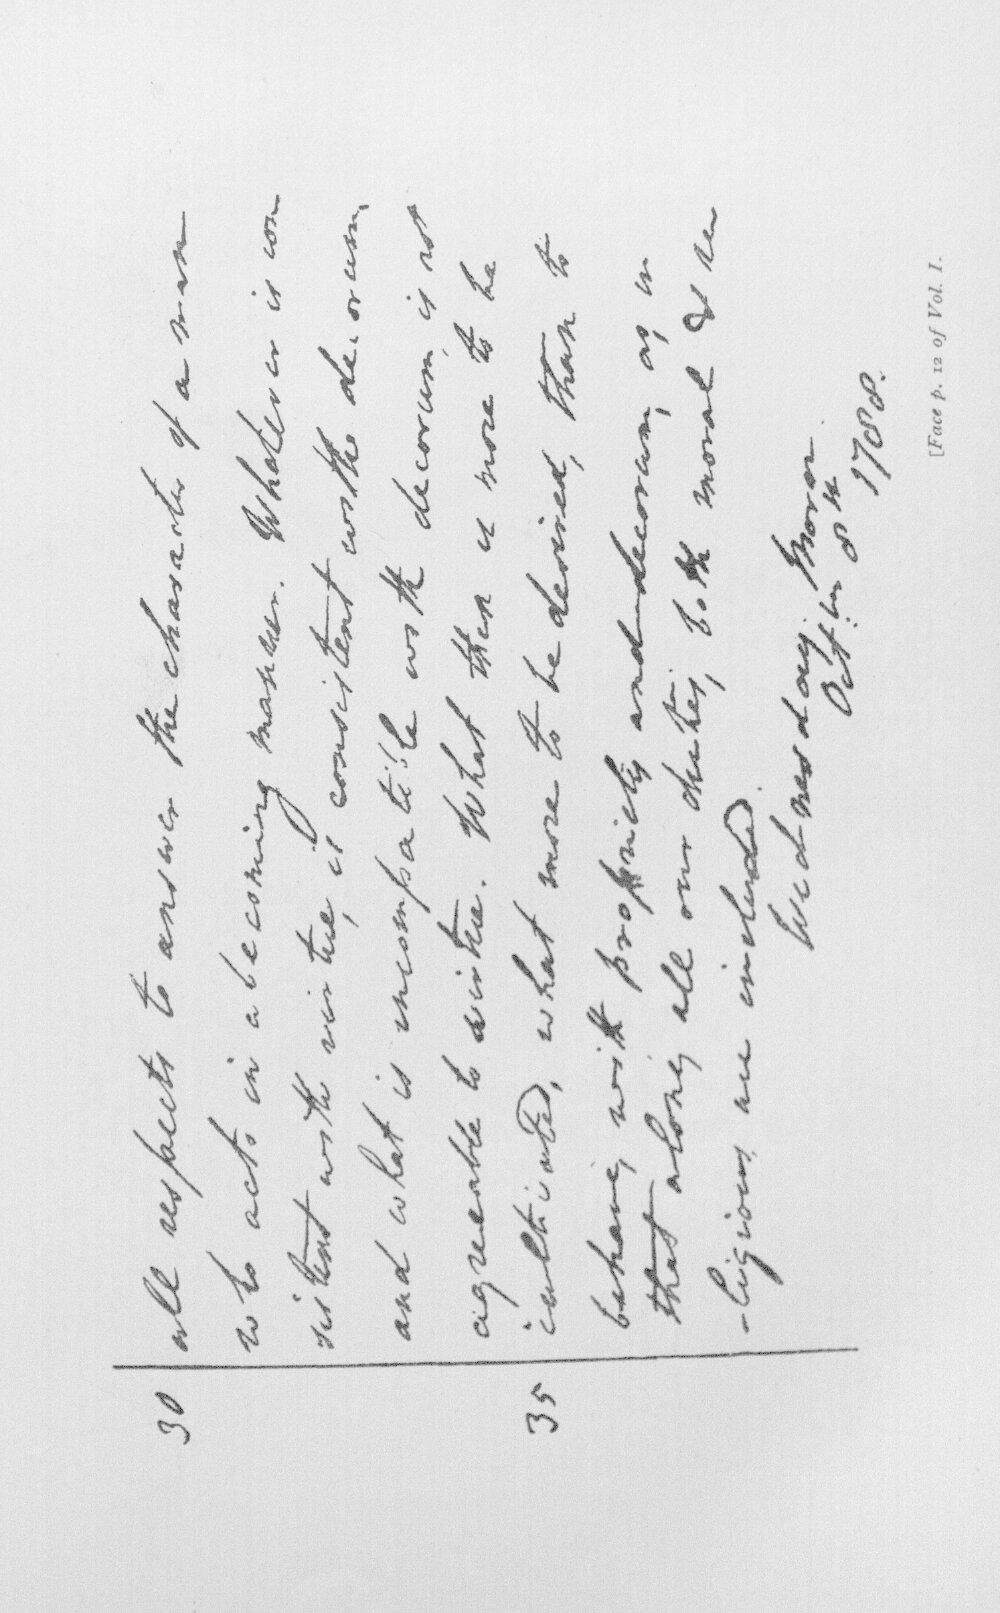 30 all respects to answer the character of a man
who acts in a becoming manner. Whatever is con
sistent with virtue, is consistent with decorum,
and what is incompatible with decorum, is not
agreeable to virtue. What then is more to be
35 cultivated, what more to be desired, than to
behave, with propriety and decorum, as in
that alone, all our duties, both moral & re
-ligious, are included.
Wednesday, Morn.
Oct:br 8th
1788.
[Face p. 12 of Vol. I.